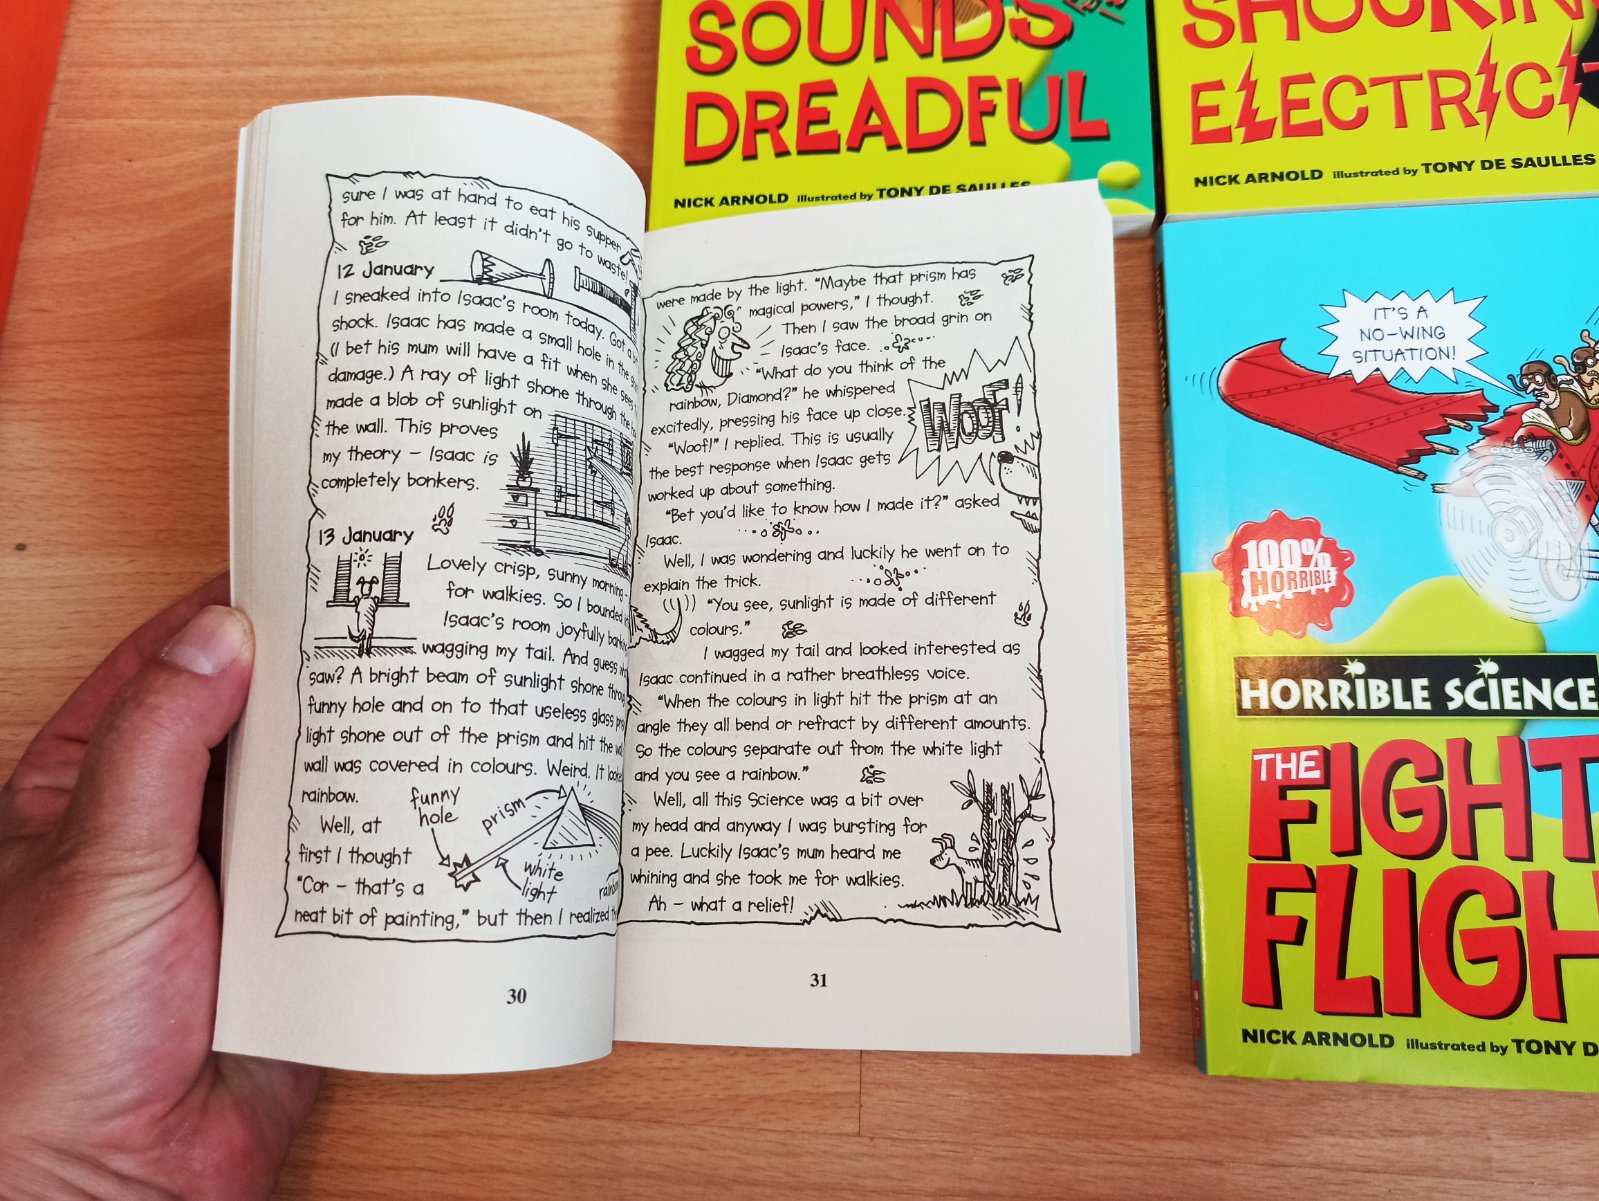 sure I was at hand to eat his supper
for him. At least it didn't go to waste!
12 January
I sneaked into Isaac's room today. Got a
shock. Isaac has made a small hole in the
(I bet his mum will have a fit when she sees
damage.) A ray of light shone through the
made a blob of sunlight on
the wall. This proves
my theory – Isaac is
completely bonkers.
13 January
Lovely crisp, sunny morning –
for walkies. So I bounded
Isaac's room joyfully
wagging my tail. And guess
saw? A bright beam of sunlight shone
funny hole and on to that useless glass
light shone out of the prism and hit the
wall was covered in colours. Weird. It
rainbow.
funny
hole
prism
white
light
Well, at
first I thought
"Cor – that's a
neat bit of painting," but then I realized
30
were made by the light. "Maybe that prism has
magical powers," I thought.
Then I saw the broad grin on
Isaac's face.
"What do you think of the
rainbow, Diamond?" he whispered
excitedly, pressing his face up close.
"Woof!" I replied. This is usually
the best response when Isaac gets
worked up about something.
WOOF!
"Bet you'd like to know how I made it?" asked
Isaac.
Well, I was wondering and luckily he went on to
explain the trick.
"You see, sunlight is made of different
colours."
I wagged my tail and looked interested as
Isaac continued in a rather breathless voice.
"When the colours in light hit the prism at an
angle they all bend or refract by different amounts.
So the colours separate out from the white light
and you see a rainbow."
Well, all this Science was a bit over
my head and anyway I was bursting for
a pee. Luckily Isaac's mum heard me
whining and she took me for walkies.
Ah – what a relief!
31
SOUNDS
DREADFUL
NICK ARNOLD illustrated by TONY DE SAULLES
ELECTRICIT
NICK ARNOLD illustrated by TONY DE SAULLES
IT'S A
NO-WING
SITUATION!
100%
HORRIBLE
HORRIBLE SCIENCE
THE
FIGHT
FLIGH
NICK ARNOLD illustrated by TONY D